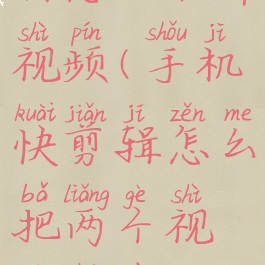 shì pín shǒu jī
视频(手机
kuài jiǎn jí zěn me
快剪辑怎么
bǎ liǎng gè shì
把两个视